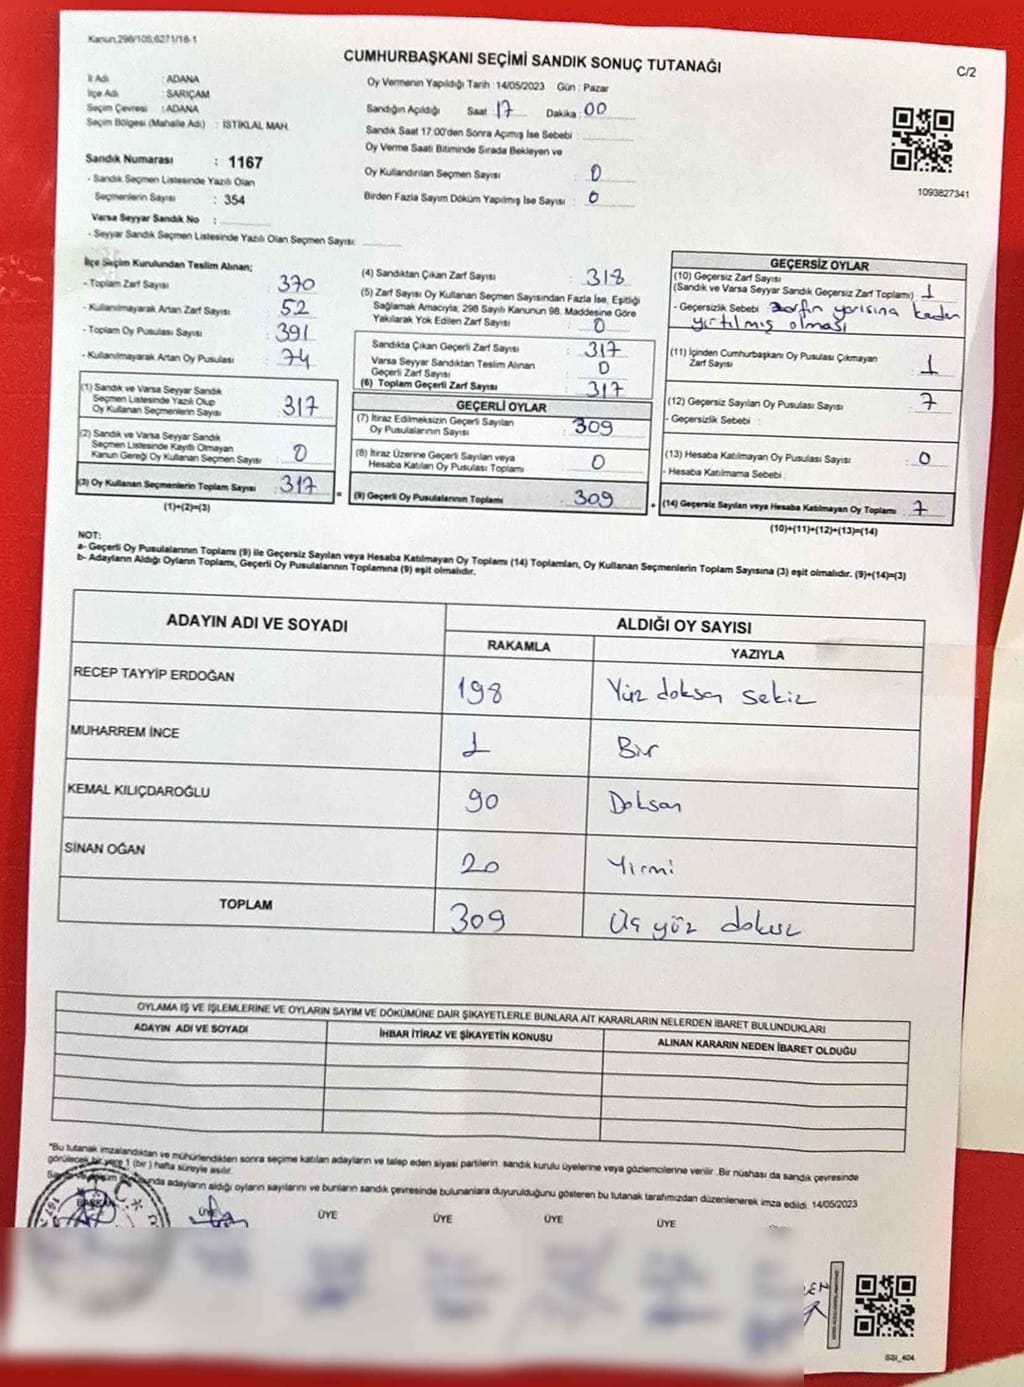 Kanun;298/105;6271/18-1
CUMHURBAŞKANI SEÇİMİ SANDIK SONUÇ TUTANAĞI
C/2
İl Adı : ADANA
İlçe Adı : SARIÇAM
Seçim Çevresi : ADANA
Seçim Bölgesi (Mahalle Adı) : İSTİKLAL MAH.
Sandık Numarası : 1167
- Sandık Seçmen Listesinde Yazılı Olan
Seçmenlerin Sayısı : 354
Varsa Seyyar Sandık No :
- Seyyar Sandık Seçmen Listesinde Yazılı Olan Seçmen Sayısı:
Oy Vermenin Yapıldığı Tarih :14/05/2023 Gün : Pazar
Sandığın Açıldığı Saat : 17 Dakika : 00
Sandık Saat 17:00'den Sonra Açımış İse Sebebi :
Oy Verme Saati Bitiminde Sırada Bekleyen ve
Oy Kullandırılan Seçmen Sayısı : 0
Birden Fazla Sayım Döküm Yapılmış İse Sayısı : 0
1093827341
İlçe Seçim Kurulundan Teslim Alınan;
- Toplam Zarf Sayısı : 370
- Kullanılmayarak Artan Zarf Sayısı : 52
- Toplam Oy Pusulası Sayısı : 391
- Kullanılmayarak Artan Oy Pusulası : 74
(1) Sandık ve Varsa Seyyar Sandık
Seçmen Listesinde Yazılı Olup
Oy Kullanan Seçmenlerin Sayısı : 317
(2) Sandık ve Varsa Seyyar Sandık
Seçmen Listesinde Kayıtlı Olmayan
Kanun Gereği Oy Kullanan Seçmen Sayısı : 0
(3) Oy Kullanan Seçmenlerin Toplam Sayısı : 317
(1)+(2)=(3)
(4) Sandıktan Çıkan Zarf Sayısı : 318
(5) Zarf Sayısı Oy Kullanan Seçmen Sayısından Fazla İse, Eşitliği
Sağlamak Amacıyla; 298 Sayılı Kanunun 98. Maddesine Göre
Yakılarak Yok Edilen Zarf Sayısı : 0
Sandıkta Çıkan Geçerli Zarf Sayısı : 317
Varsa Seyyar Sandıktan Teslim Alınan
Geçerli Zarf Sayısı : 0
(6) Toplam Geçerli Zarf Sayısı : 317
GEÇERLİ OYLAR
(7) İtiraz Edilmeksizin Geçerli Sayılan
Oy Pusulalarının Sayısı : 309
(8) İtiraz Üzerine Geçerli Sayılan veya
Hesaba Katılan Oy Pusulası Toplamı : 0
= (9) Geçerli Oy Pusulalarının Toplamı : 309
GEÇERSİZ OYLAR
(10) Geçersiz Zarf Sayısı
(Sandık ve Varsa Seyyar Sandık Geçersiz Zarf Toplamı) : 1
- Geçersizlik Sebebi : zarfın yarısına kadar
yırtılmış olması
(11) İçinden Cumhurbaşkanı Oy Pusulası Çıkmayan
Zarf Sayısı : 1
(12) Geçersiz Sayılan Oy Pusulası Sayısı : 7
- Geçersizlik Sebebi :
(13) Hesaba Katılmayan Oy Pusulası Sayısı : 0
- Hesaba Katılmama Sebebi :
+ (14) Geçersiz Sayılan veya Hesaba Katılmayan Oy Toplamı : 7
(10)+(11)+(12)+(13)=(14)
NOT:
a- Geçerli Oy Pusulalarının Toplamı (9) ile Geçersiz Sayılan veya Hesaba Katılmayan Oy Toplamı (14) Toplamları, Oy Kullanan Seçmenlerin Toplam Sayısına (3) eşit olmalıdır. (9)+(14)=(3)
b- Adayların Aldığı Oyların Toplamı, Geçerli Oy Pusulalarının Toplamına (9) eşit olmalıdır.
ADAYIN ADI VE SOYADI
ALDIĞI OY SAYISI
RAKAMLA YAZIYLA
RECEP TAYYİP ERDOĞAN 198 Yüz doksan sekiz
MUHARREM İNCE 1 Bir
KEMAL KILIÇDAROĞLU 90 Doksan
SİNAN OĞAN 20 Yirmi
TOPLAM 309 Üç yüz dokuz
OYLAMA İŞ VE İŞLEMLERİNE VE OYLARIN SAYIM VE DÖKÜMÜNE DAİR ŞİKAYETLERLE BUNLARA AİT KARARLARIN NELERDEN İBARET BULUNDUKLARI
ADAYIN ADI VE SOYADI İHBAR İTİRAZ VE ŞİKAYETİN KONUSU ALINAN KARARIN NEDEN İBARET OLDUĞU
*Bu tutanak imzalandıktan ve mühürlendikten sonra seçime katılan adayların ve talep eden siyasi partilerin sandık kurulu üyelerine veya gözlemcilerine verilir .Bir nüshası da sandık çevresinde
görülecek bir yere 1 (bir ) hafta süreyle asılır.
adayların aldığı oyların sayılarını ve bunların sandık çevresinde bulunanlara duyurulduğunu gösteren bu tutanak tarafımızdan düzenlenerek imza edildi. 14/05/2023
BAŞKAN ÜYE ÜYE ÜYE ÜYE ÜYE
SSI_404